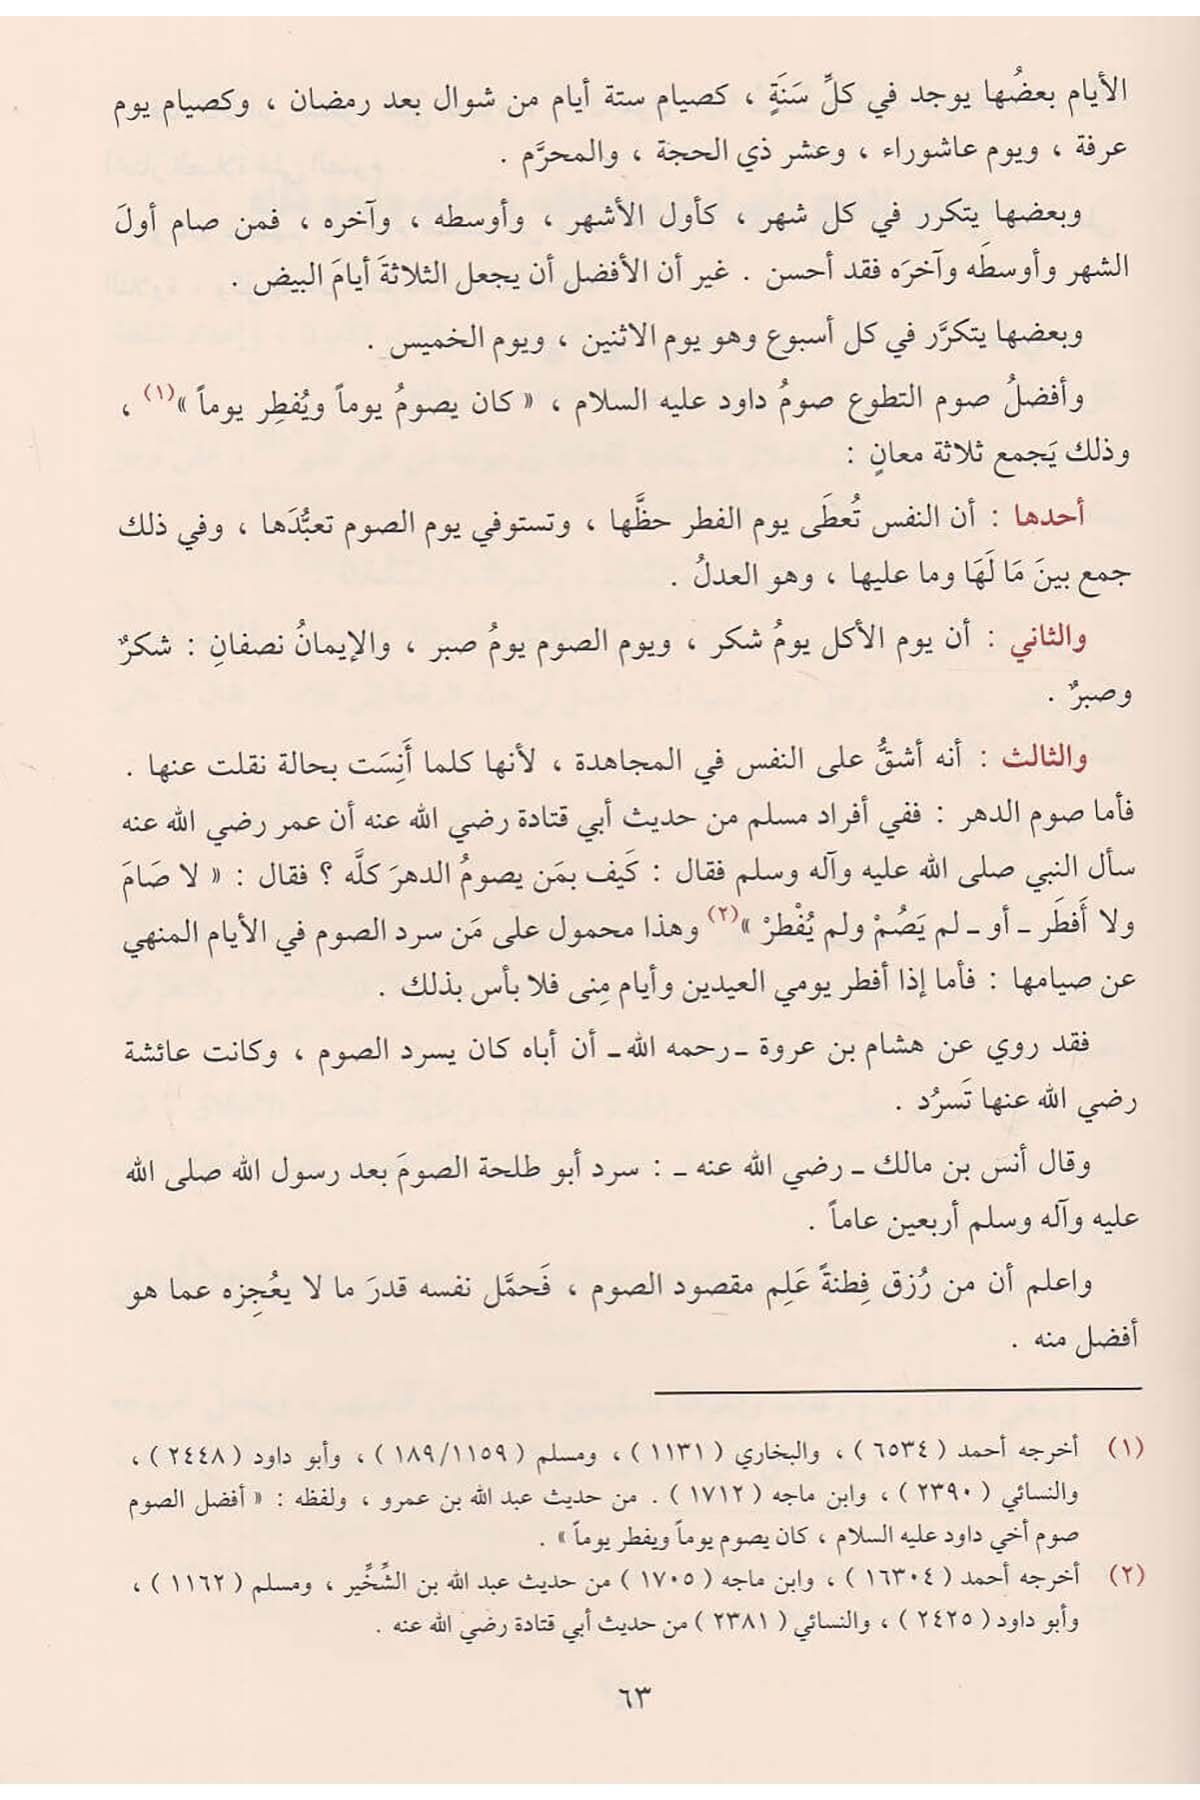 الأيام بعضُها يوجد في كلِّ سَنَةٍ ، كصيام ستة أيام من شوال بعد رمضان ، وكصيام يوم
عرفة ، ويوم عاشوراء ، وعشر ذي الحجة ، والمحرَّم .
وبعضها يتكرر في كل شهر ، كأول الأشهر ، وأوسطه ، وآخره ، فمن صام أولَ
الشهر وأوسطَه وآخرَه فقد أحسن . غير أن الأفضل أن يجعل الثلاثةَ أيامَ البيض .
وبعضها يتكرَّر في كل أسبوع وهو يوم الاثنين ، ويوم الخميس .
وأفضلُ صوم التطوع صومُ داود عليه السلام ، « كان يصومُ يوماً ويُفطِر يوماً »(١) ،
وذلك يَجمع ثلاثة معانٍ :
أحدها : أن النفس تُعطَى يوم الفطر حظَّها ، وتستوفي يوم الصوم تعبُّدَها ، وفي ذلك
جمع بينَ مَا لَهَا وما عليها ، وهو العدلُ .
والثاني : أن يوم الأكل يومُ شكر ، ويوم الصوم يومُ صبر ، والإيمانُ نصفانِ : شكرٌ
وصبرٌ .
والثالث : أنه أشقُّ على النفس في المجاهدة ، لأنها كلما أَنِسَت بحالة نقلت عنها .
فأما صوم الدهر : ففي أفراد مسلم من حديث أبي قتادة رضي الله عنه أن عمر رضي الله عنه
سأل النبي صلى الله عليه وآله وسلم فقال : كَيف بمَن يصومُ الدهرَ كلَّه ؟ فقال : « لا صَامَ
ولا أَفطَر ـ أو ـ لم يَصُمْ ولم يُفْطرْ »(٢) وهذا محمول على مَن سرد الصوم في الأيام المنهي
عن صيامها : فأما إذا أفطر يومي العيدين وأيام مِنى فلا بأس بذلك .
فقد روي عن هشام بن عروة ـ رحمه الله ـ أن أباه كان يسرد الصوم ، وكانت عائشة
رضي الله عنها تَسرُد .
وقال أنس بن مالك ـ رضي الله عنه ـ : سرد أبو طلحة الصومَ بعد رسول الله صلى الله
عليه وآله وسلم أربعين عاماً .
واعلم أن من رُزق فِطنةً عَلِم مقصود الصوم ، فَحمَّل نفسه قدرَ ما لا يعُجِزه عما هو
أفضل منه .
(١) أخرجه أحمد ( ٦٥٣٤ ) ، والبخاري ( ١١٣١ ) ، ومسلم ( ١٨٩/١١٥٩ ) ، وأبو داود ( ٢٤٤٨ ) ،
والنسائي ( ٢٣٩٠ ) ، وابن ماجه ( ١٧١٢ ) . من حديث عبد الله بن عمرو ، ولفظه : « أفضل الصوم
صوم أخي داود عليه السلام ، كان يصوم يوماً ويفطر يوماً » .
(٢) أخرجه أحمد ( ١٦٣٠٤ ) ، وابن ماجه ( ١٧٠٥ ) من حديث عبد الله بن الشِّخِّير ، ومسلم ( ١١٦٢ ) ،
وأبو داود ( ٢٤٢٥ ) ، والنسائي ( ٢٣٨١ ) من حديث أبي قتادة رضي الله عنه .
٦٣